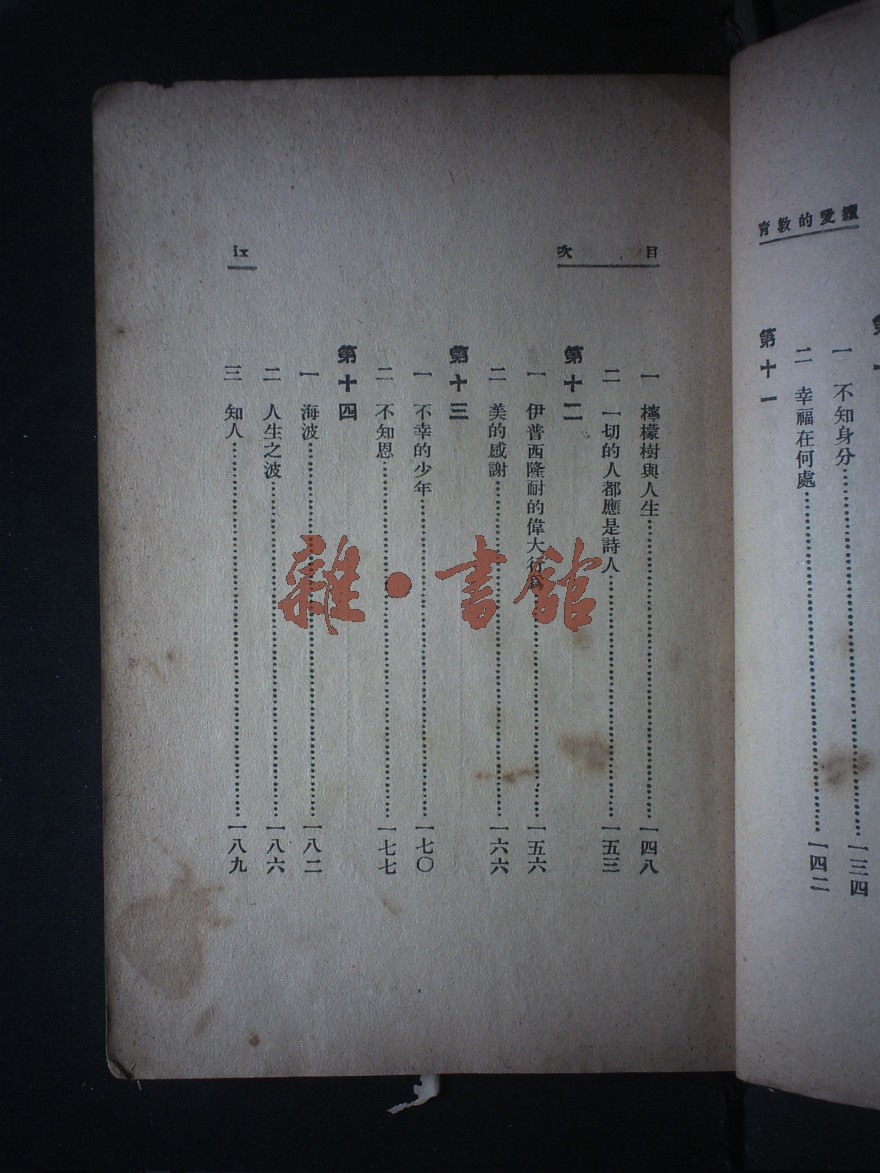 續愛的教育
一　不知身分……一三四
二　幸福在何處……一四二
第十一
目次
ix
一　檸檬樹與人生……一四八
二　一切的人都應是詩人……一五三
第十二
一　伊普西隆耐的偉大行為……一五六
二　美的感謝……一六六
第十三
一　不幸的少年……一七〇
二　不知恩……一七七
第十四
一　海波……一八二
二　人生之波……一八六
三　知人……一八九
雜·書館